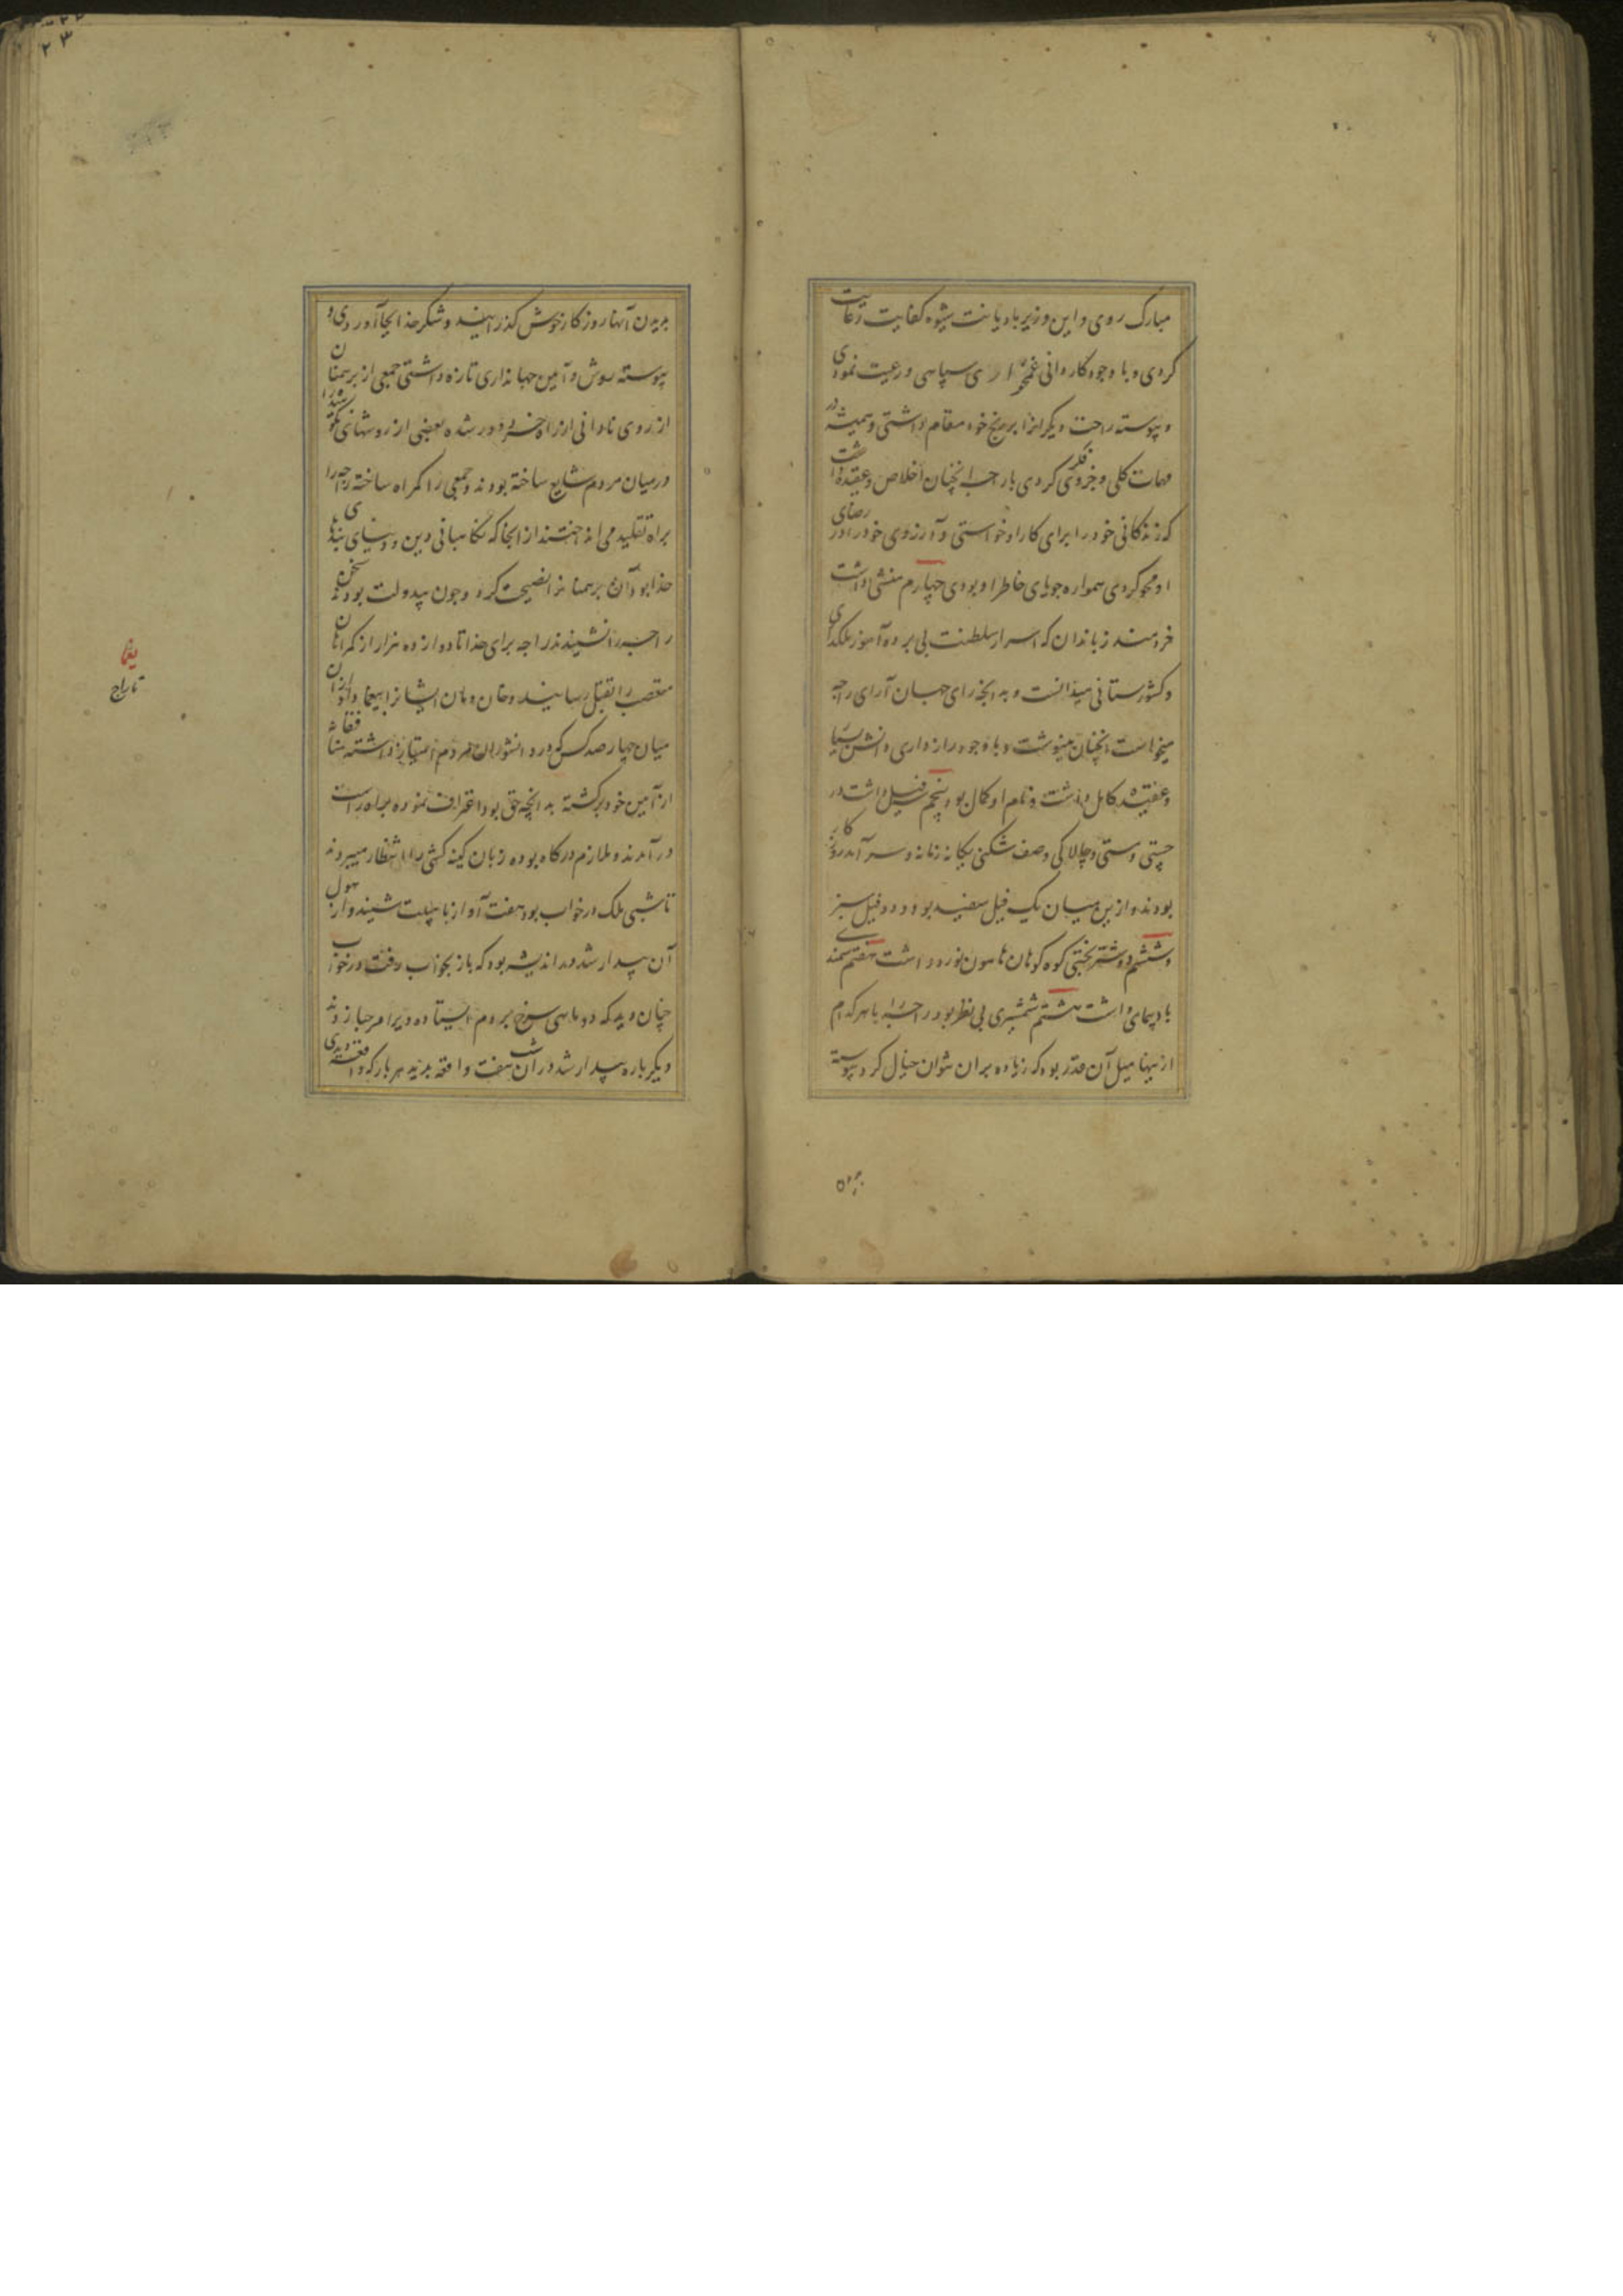 مبارک روی و این وزیر با دیانت شیوه کفایت رعایت
کردی و با وجود کاردانی غمخواری سپاهی و رعیت نمودی
و پیوسته راحت دیگرانرا بر رنج خود مقام داشتی و همیشه در
مهمات کلی و جزوی فکر کردی با راجه آنچنان اخلاص و عقیده داشت
که زندگانی خود را برای کار او خواستی و آرزوی خود را در رضای
او محو کردی همواره جویای خاطر او بودی چهارم منشی داشت
خردمند زباندان که اسرار سلطنت پی برده آموز ملکداری
و کشورستانی میدانست و به آنچه رای جهان آرای راجه
میخواست آنچنان مینوشت و با وجود رازداری دانش بسیار
و عقیده کامل داشت و نام او کمال بود پنجم فیل داشت در
چستی و مستی و چالاکی و صف شکنی یگانه زمانه و سرآمد روزگار
بودند و ازین میان یک فیل سفید بود و دو فیل سبز
و ششم دو شتر بختی کوه کوهان هامون نورد داشت هفتم سمندی
بادپیمای داشت هشتم شمشیری بی نظیر بود راجه را با هر کدام
ازینها میل آن قدر بود که زیاده بر آن نتوان خیال کرد پیوسته
بدیدن
بدیدن آنها روزگار خوش گذرانیند و شکر خدا بجا آوردی و
پیوسته روش و آیین جهانداری تازه داشتی جمعی از برهمنان
از روی نادانی از راه خرد دور شده بعضی از روشهای نکوهیده را
در میان مردم شایع ساخته بودند و جمعی را گمراه ساخته راجه را
براه تقلید می انداختند از آنجا که نگاهبانی دین و دنیای بندهای
خدا بود آن برهمنانرا نصیحت کرد و چون بیدولت بودند سخن
راجه را نشنیدند راجه برای خدا تا دوازده هزار از گمراهان
متعصب را بقتل رسانید و خان و مان ایشانرا بیغما داد و از آن
میان چهار صد کس که در دانشوران مردم امتیاز داشته
از آیین خود برگشته به آنچه حق بود اعتراف نموده براه راست
در آمدند و ملازم درگاه بوده زبان کینه کشی را انتظار میبردند
تا شبی ملک در خواب بود هفت آواز با هیبت شنید و از هول
آن بیدار شد در اندیشه بود که باز بخواب رفت در خواب
چنان دید که دو ماهی سرخ بر دم ایستاده ویرا مرحبا زدند
دیگر باره بیدار شد در آن شب هفت واقعه بدید هر بار که واقعه دیدی
یغما
تاراج
۲۳